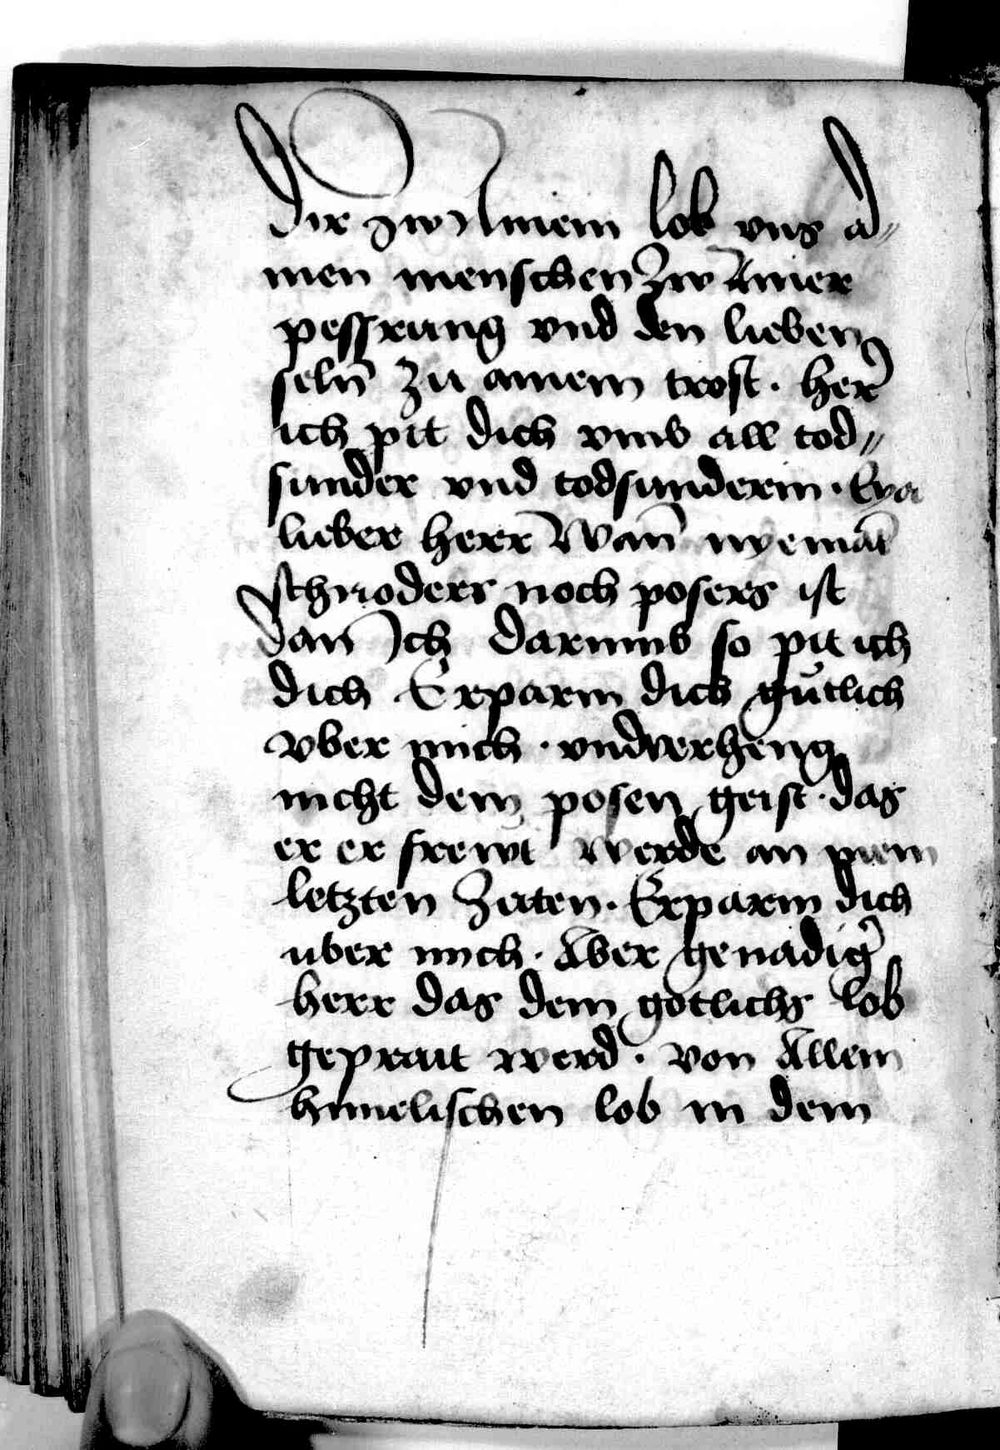 Dir zw Ainem lob vns a⸗
men menschen Zw Ainer
pessrung vnd den lieben
seln̄ zu ainem trost · her
ich pit dich vmb all tod⸗
sunder vnd todsunderin · Eya
lieber herr Wan̄ nyemāt
schnoders noch posers ist
dan̄ Ich darumb so pit ich
dich Erparm dich gütlich
vber mich · vnd verheng
nicht dem posen geist · das
er er frewt werde an mein
letzten Zeiten · Erparm dich
uber mich · Aber genadig
herr das dem gotlichs lob
geprait werd · von Allem
himelischen lob in dem